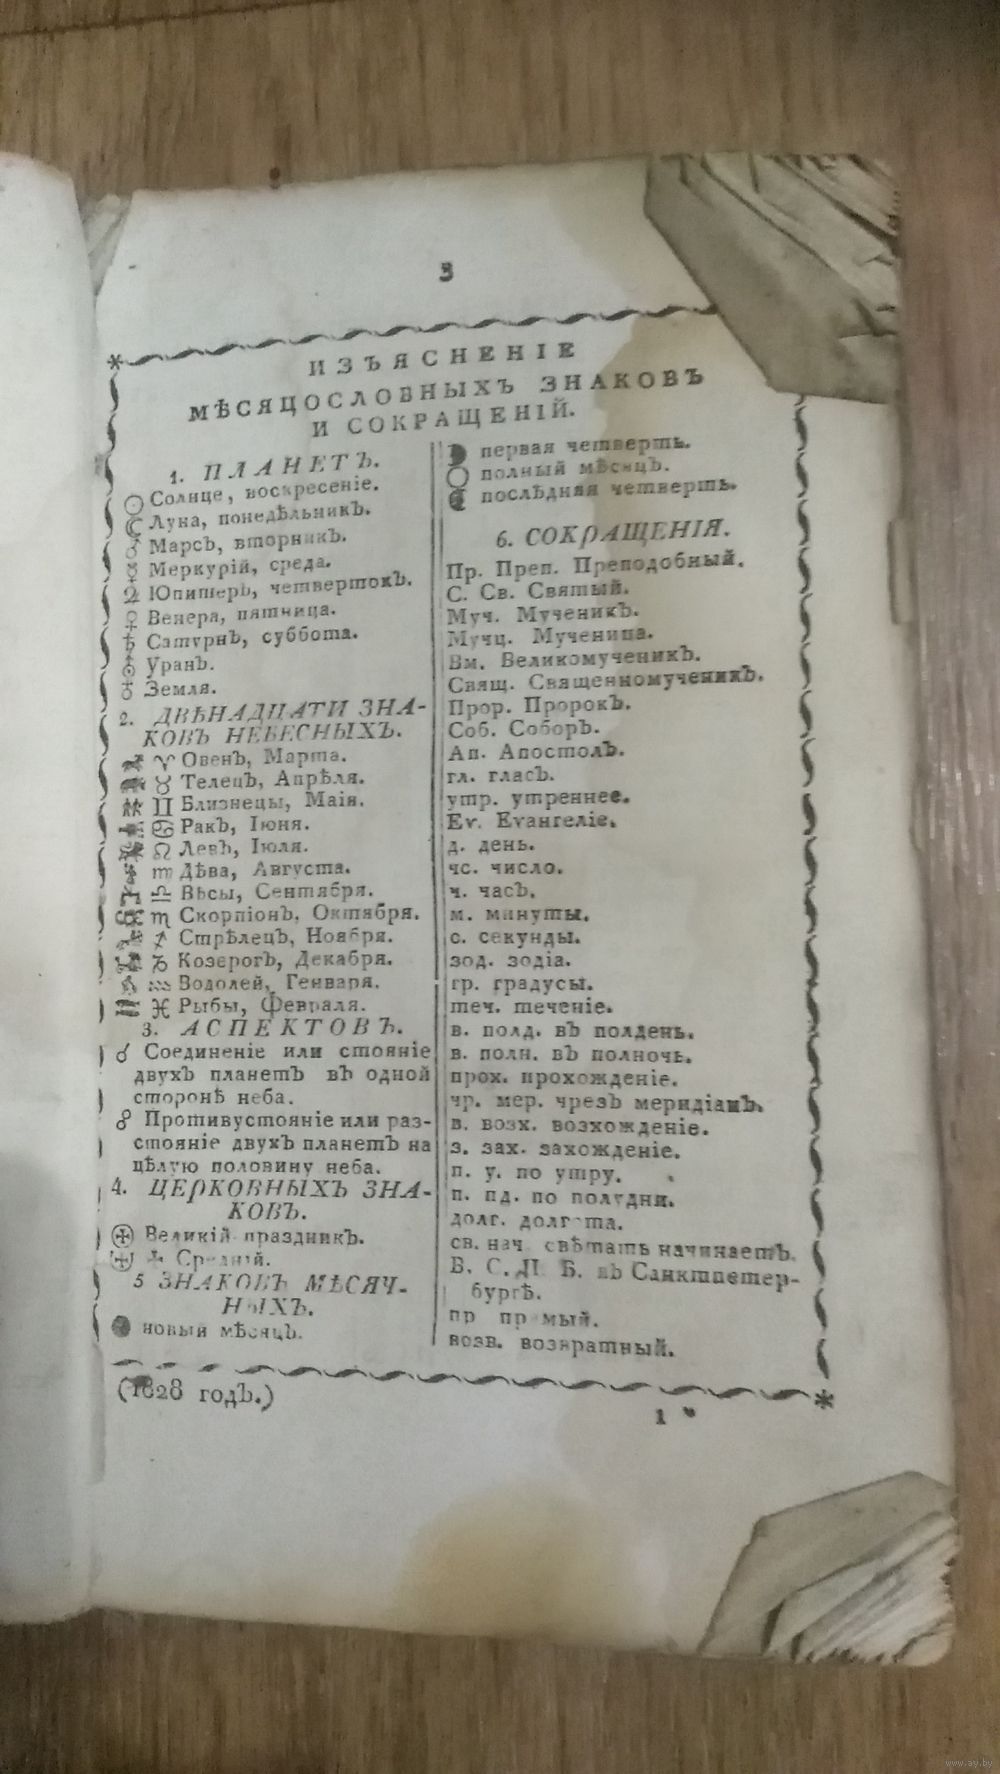 3
ИЗЪЯСНЕНІЕ
МѢСЯЦОСЛОВНЫХЪ ЗНАКОВЪ
И СОКРАЩЕНІЙ.
1. ПЛАНЕТЪ.
☉ Солнце, воскресеніе.
☾ Луна, понедѣльникъ.
♂ Марсъ, вторникъ.
☿ Меркурій, среда.
♃ Юпитеръ, четвертокъ.
♀ Венера, пятница.
♄ Сатурнъ, суббота.
⛢ Уранъ.
♁ Земля.
2. ДВѢНАДЦАТИ ЗНА-
КОВЪ НЕБЕСНЫХЪ.
♈ Овенъ, Марта.
♉ Телецъ, Апрѣля.
♊ Близнецы, Маія.
♋ Ракъ, Іюня.
♌ Левъ, Іюля.
♍ Дѣва, Августа.
♎ Вѣсы, Сентября.
♏ Скорпіонъ, Октября.
♐ Стрѣлецъ, Ноября.
♑ Козерогъ, Декабря.
♒ Водолей, Генваря.
♓ Рыбы, Февраля.
3. АСПЕКТОВЪ.
☌ Соединеніе или стояніе
двухъ планетъ въ одной
сторонѣ неба.
☍ Противустояніе или раз-
стояніе двухъ планетъ на
цѣлую половину неба.
4. ЦЕРКОВНЫХЪ ЗНА-
КОВЪ.
Великій праздникъ.
Средній.
5 ЗНАКОВЪ МѢСЯЧ-
НЫХЪ.
новый мѣсяцъ.
первая четверть.
полный мѣсяцъ.
послѣдняя четверть.
6. СОКРАЩЕНІЯ.
Пр. Преп. Преподобный.
С. Св. Святый.
Муч. Мученикъ.
Мучц. Мученица.
Вм. Великомученикъ.
Свящ. Священномученикъ.
Прор. Пророкъ.
Соб. Соборъ.
Ап. Апостолъ.
гл. гласъ.
утр. утреннее.
Еѵ. Еѵангеліе.
д. день.
чс. число.
ч. часъ.
м. минуты.
с. секунды.
зод. зодіа.
гр. градусы.
теч. теченіе.
в. полд. въ полдень.
в. полн. въ полночь.
прох. прохожденіе.
чр. мер. чрезъ меридіанъ.
в. возх. возхожденіе.
з. зах. захожденіе.
п. у. по утру.
п. пд. по полудни.
долг. долгота.
св. нач. свѣтать начинаетъ.
В. С. П. Б. въ Санктпетер-
бургѣ.
пр прямый.
возв. возвратный.
(1828 годъ.)
1 *
www.ay.by